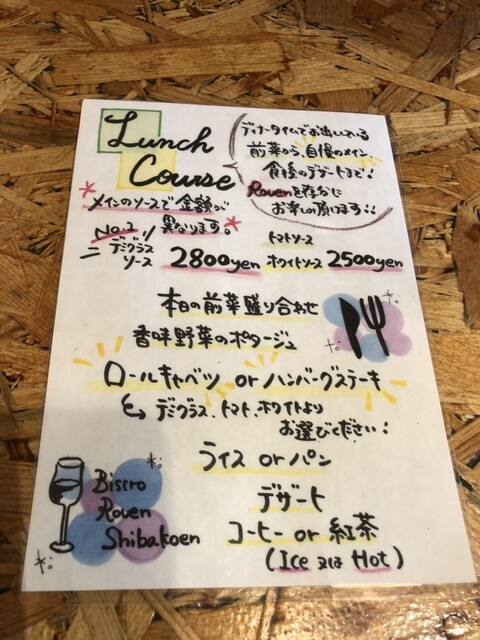 Lunch
Course
ディナータイムでお出ししている
前菜から、自慢のメイン、
食後のデザートまで!
Rouenを存分に
お楽しみ頂けます!!
*メインのソースで金額が
異なります。*
No.1!!
デミグラス
ソース 2800yen
トマトソース
ホワイトソース 2500yen
本日の前菜盛り合わせ
香味野菜のポタージュ
ロールキャベツ or ハンバーグステーキ
↪ デミグラス、トマト、ホワイトより
お選びください!
ライス or パン
デザート
コーヒー or 紅茶
(Ice 又は Hot)
Bistro
Rouen
Shibakoen